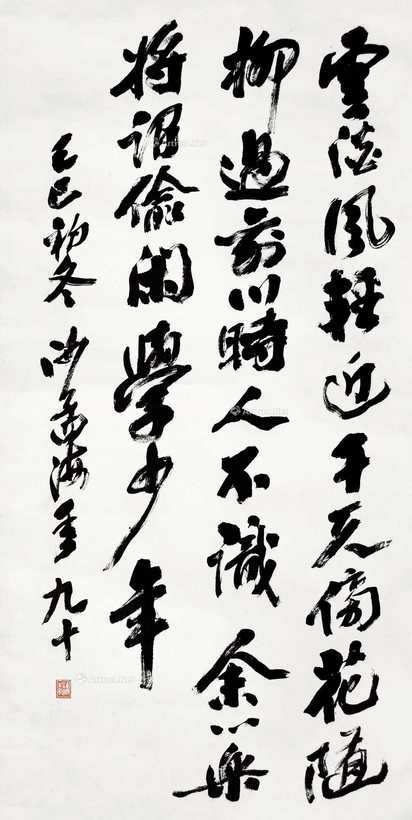 雲澹風輕近午天傍花隨
柳過前川時人不識余心樂
將謂偷閑學少年
己巳初冬 沙孟海年九十
Artron.Net